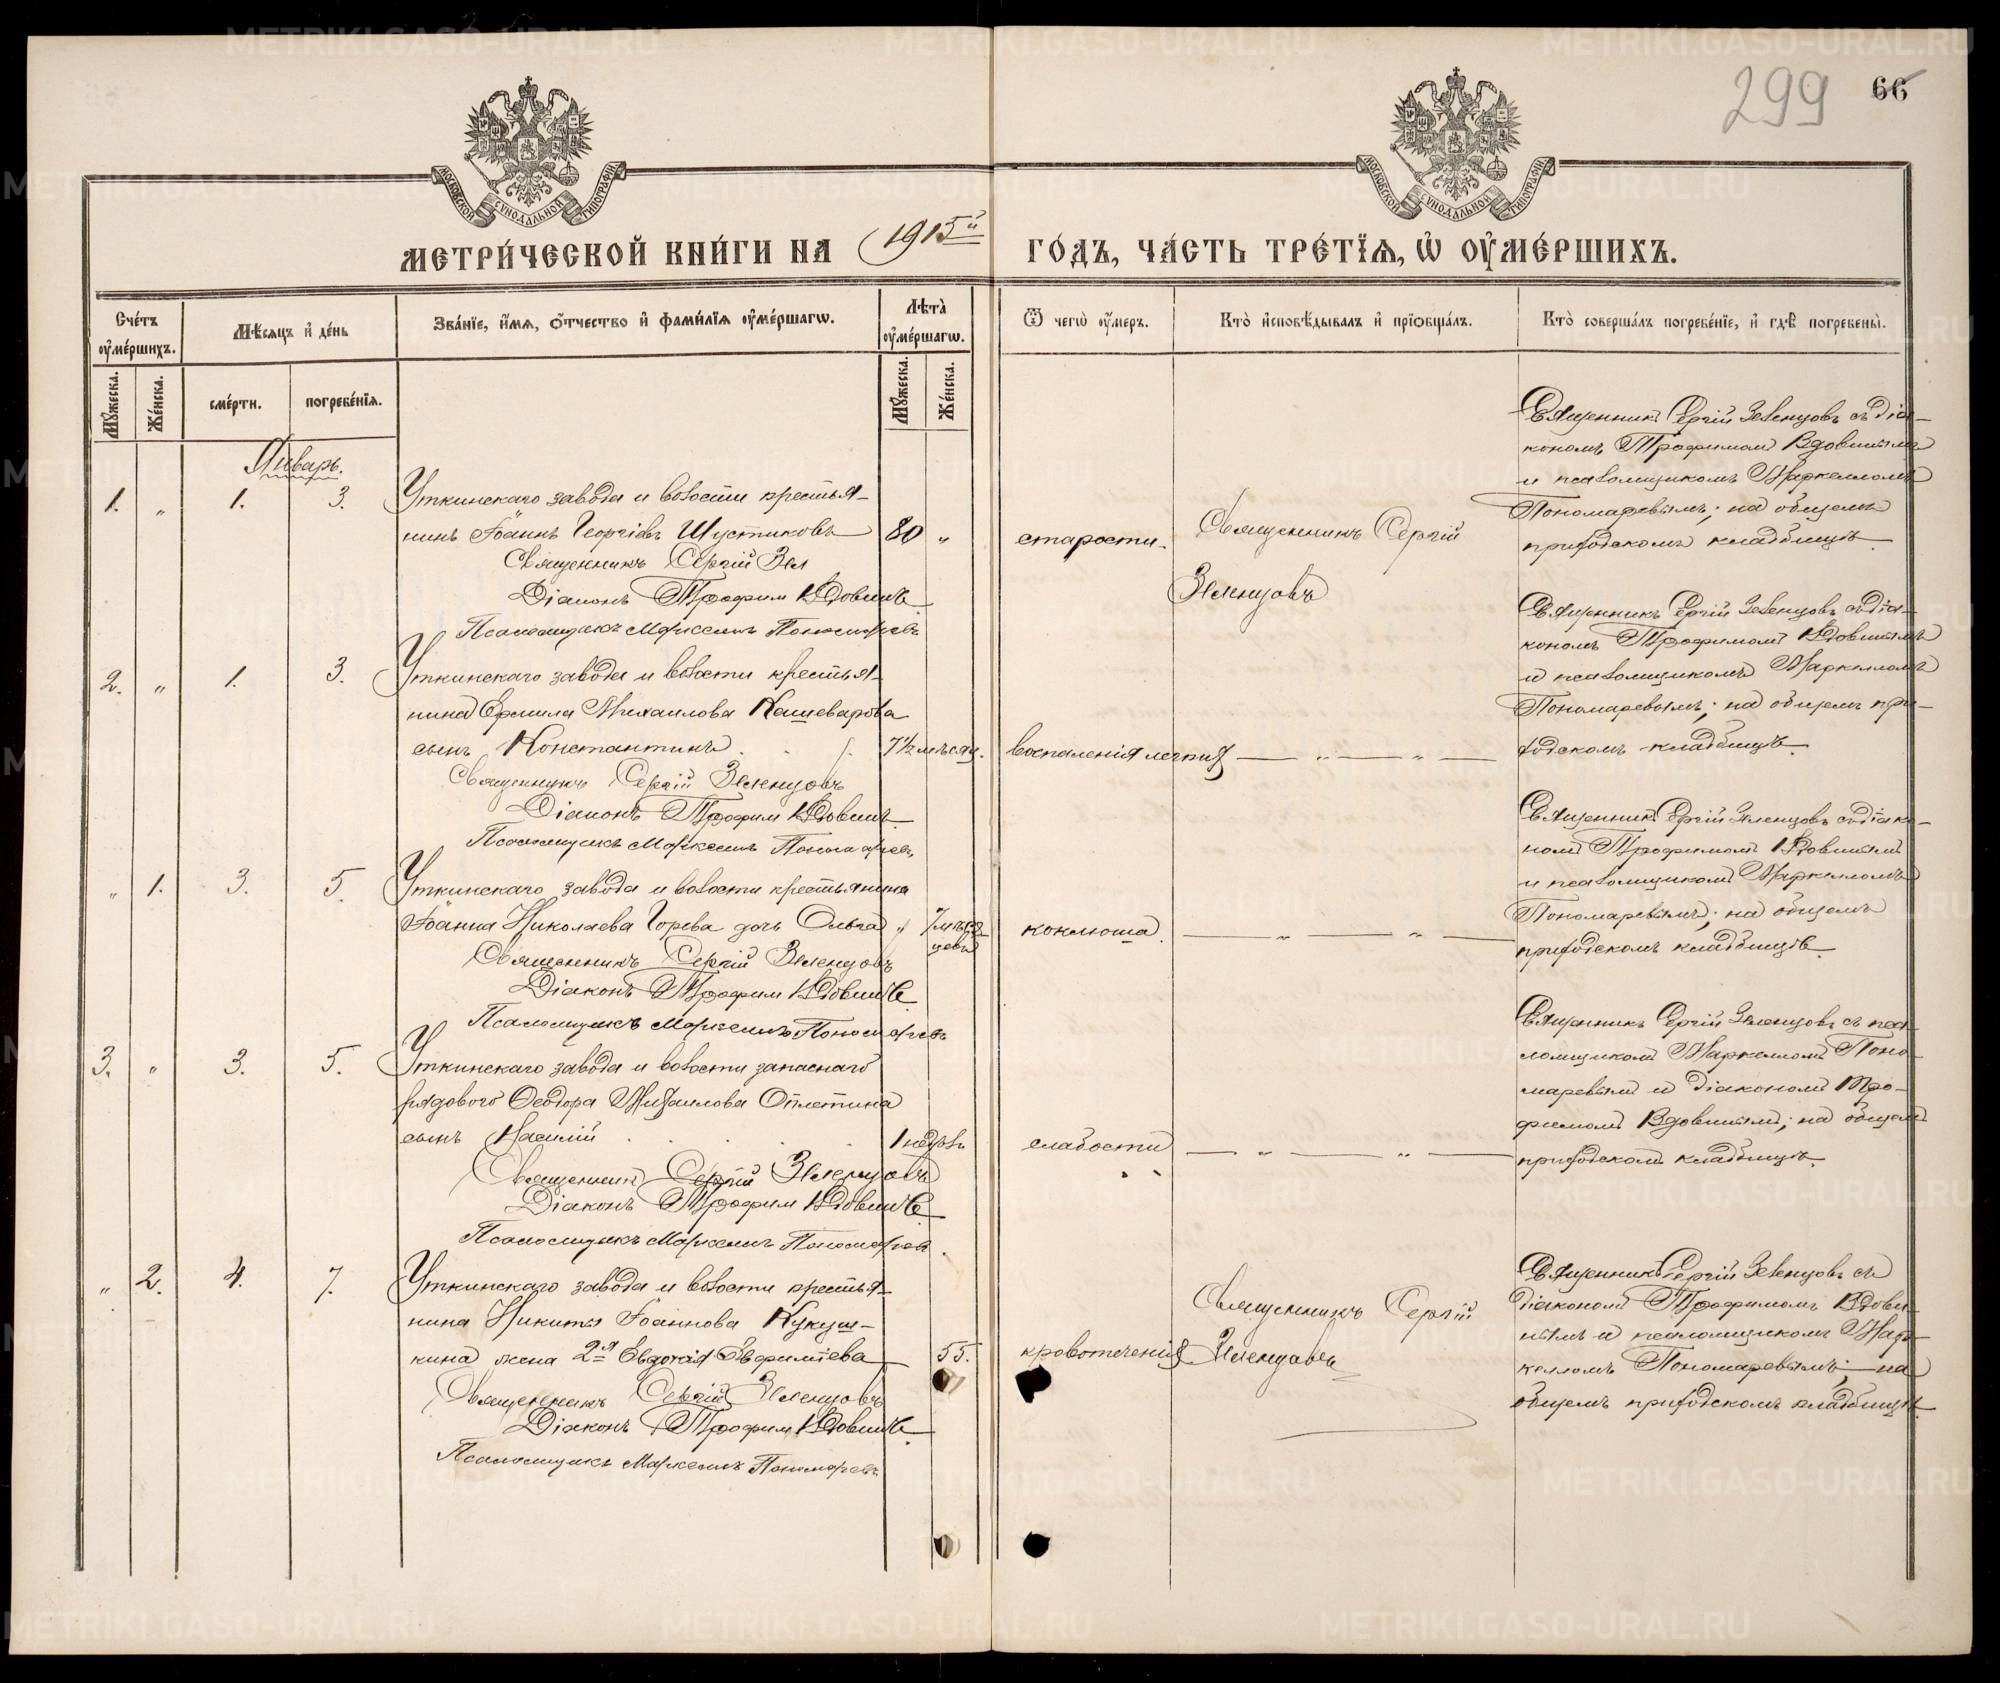 299
66
МОСКОВСКОЙ СѴНОДАЛЬНОЙ ТИПОГРАФІИ
МОСКОВСКОЙ СѴНОДАЛЬНОЙ ТИПОГРАФІИ
МЕТРИ́ЧЕСКОЙ КНИ́ГИ НА 1915й ГО́ДЪ, ЧА́СТЬ ТРЕ́ТЇѦ, Ѽ ОУ҆МЕ́РШИХЪ.
Сче́тъ оу҆ме́ршихъ.
Мꙋ́жеска.
Же́нска.
Мѣ́сяцъ и҆ де́нь
сме́рти.
погребе́нїѧ.
Зва́нїе, и҆́мѧ, ѻ҆́тчество и҆ фамѝлїѧ оу҆ме́ршагѡ.
Лѣ́та оу҆ме́ршагѡ.
Мꙋ́жеска.
Же́нска.
Ѿ чегѡ̀ оу҆́меръ.
Кто̀ и҆сповѣ́дывалъ и҆ прїѡбща́лъ.
Кто̀ соверша́лъ погребе́нїе, и҆ гдѣ̀ погребены̀.
Январь.
1. „ 1. 3.
Уткинскаго завода и волости крестья-
нинъ Іоаннъ Георгіевъ Шустиковъ 80 „
Священникъ Сергій Зел
Діаконъ Трофим Вдовинъ
Псаломщикъ Маркеллъ Пономаревъ
старости.
Священникъ Сергій
Зеленцовъ
Священникъ Сергій Зеленцовъ съ діа-
кономъ Трофимомъ Вдовинымъ
и псаломщикомъ Маркелломъ
Пономаревымъ; на общемъ
приходскомъ кладбищѣ.
2. „ 1. 3.
Уткинскаго завода и волости крестья-
нина Ермила Михаилова Кашеварова
сынъ Константинъ 7½ мѣсяц.
Священникъ Сергій Зеленцовъ
Діаконъ Трофим Вдовинъ
Псаломщикъ Маркеллъ Пономаревъ
воспаленія легкихъ — „ — „ —
Священникъ Сергій Зеленцовъ съ діа-
кономъ Трофимомъ Вдовинымъ
и псаломщикомъ Маркелломъ
Пономаревымъ; на общемъ при-
ходскомъ кладбищѣ.
„ 1. 3. 5.
Уткинскаго завода и волости крестьянина
Іоанна Николаева Горева дочь Ольга „ 7 мѣся-
цевъ
Священникъ Сергій Зеленцовъ
Діаконъ Трофим Вдовинъ
Псаломщикъ Маркеллъ Пономаревъ
коклюша. — „ — „ —
Священникъ Сергій Зеленцовъ съ діако-
номъ Трофимомъ Вдовинымъ
и псаломщикомъ Маркелломъ
Пономаревымъ; на общемъ
приходскомъ кладбищѣ.
3. „ 3. 5.
Уткинскаго завода и волости запаснаго
рядового Ѳеодора Михаилова Оплетина
сынъ Василій 1 недѣль
Священникъ Сергій Зеленцовъ
Діаконъ Трофим Вдовинъ
Псаломщикъ Маркеллъ Пономаревъ
слабости — „ — „ —
Священникъ Сергій Зеленцовъ съ пса-
ломщикомъ Маркелломъ Поно-
маревымъ и діакономъ Тро-
фимомъ Вдовинымъ; на общемъ
приходскомъ кладбищѣ.
„ 2. 4. 7.
Уткинскаго завода и волости крестья-
нина Никиты Іоаннова Кукуш-
кина жена 2я Евдокія Евфиміева 55.
Священникъ Сергій Зеленцовъ
Діаконъ Трофим Вдовинъ
Псаломщикъ Маркеллъ Пономаревъ
кровотеченія
Священникъ Сергій
Зеленцовъ
Священникъ Сергій Зеленцовъ съ
діакономъ Трофимомъ Вдови-
нымъ и псаломщикомъ Мар-
келломъ Пономаревымъ; на
общемъ приходскомъ кладбищѣ.
METRIKI.GASO-URAL.RU